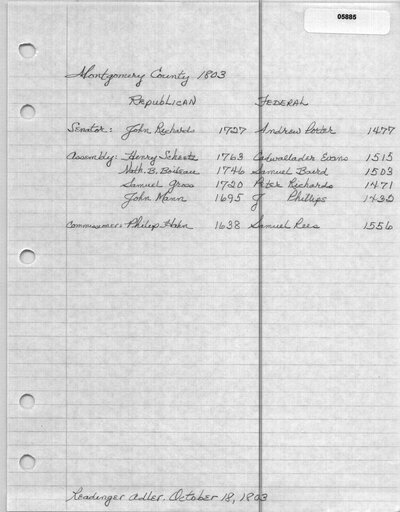 05885
Montgomery County 1803
Republican Federal
Senator: John Richards 1727 Andrew Porter 1477
Assembly: Henry Scheetz 1763 Cadwallader Evans 1515
Nath. B. Boileau 1746 Samuel Baird 1503
Samuel Gross 1720 Peter Richards 1471
John Mann 1695 J Phillips 1432
Commissioner: Philip Hahn 1638 Samuel Rees 1556
Readinger Adler. October 18, 1803